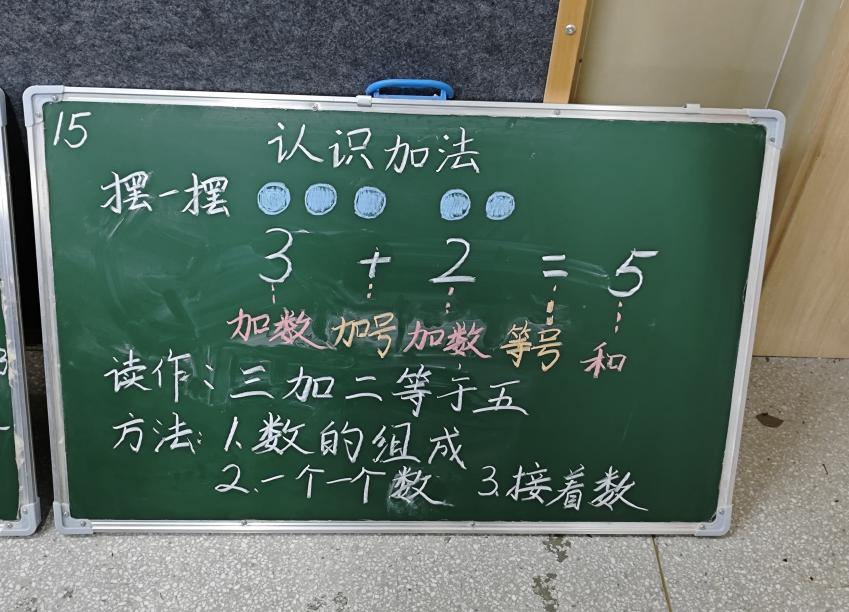 15
认识加法
摆一摆
3 + 2 = 5
加数 加号 加数 等号 和
读作：三加二等于五
方法：1.数的组成
2.一个一个数 3.接着数